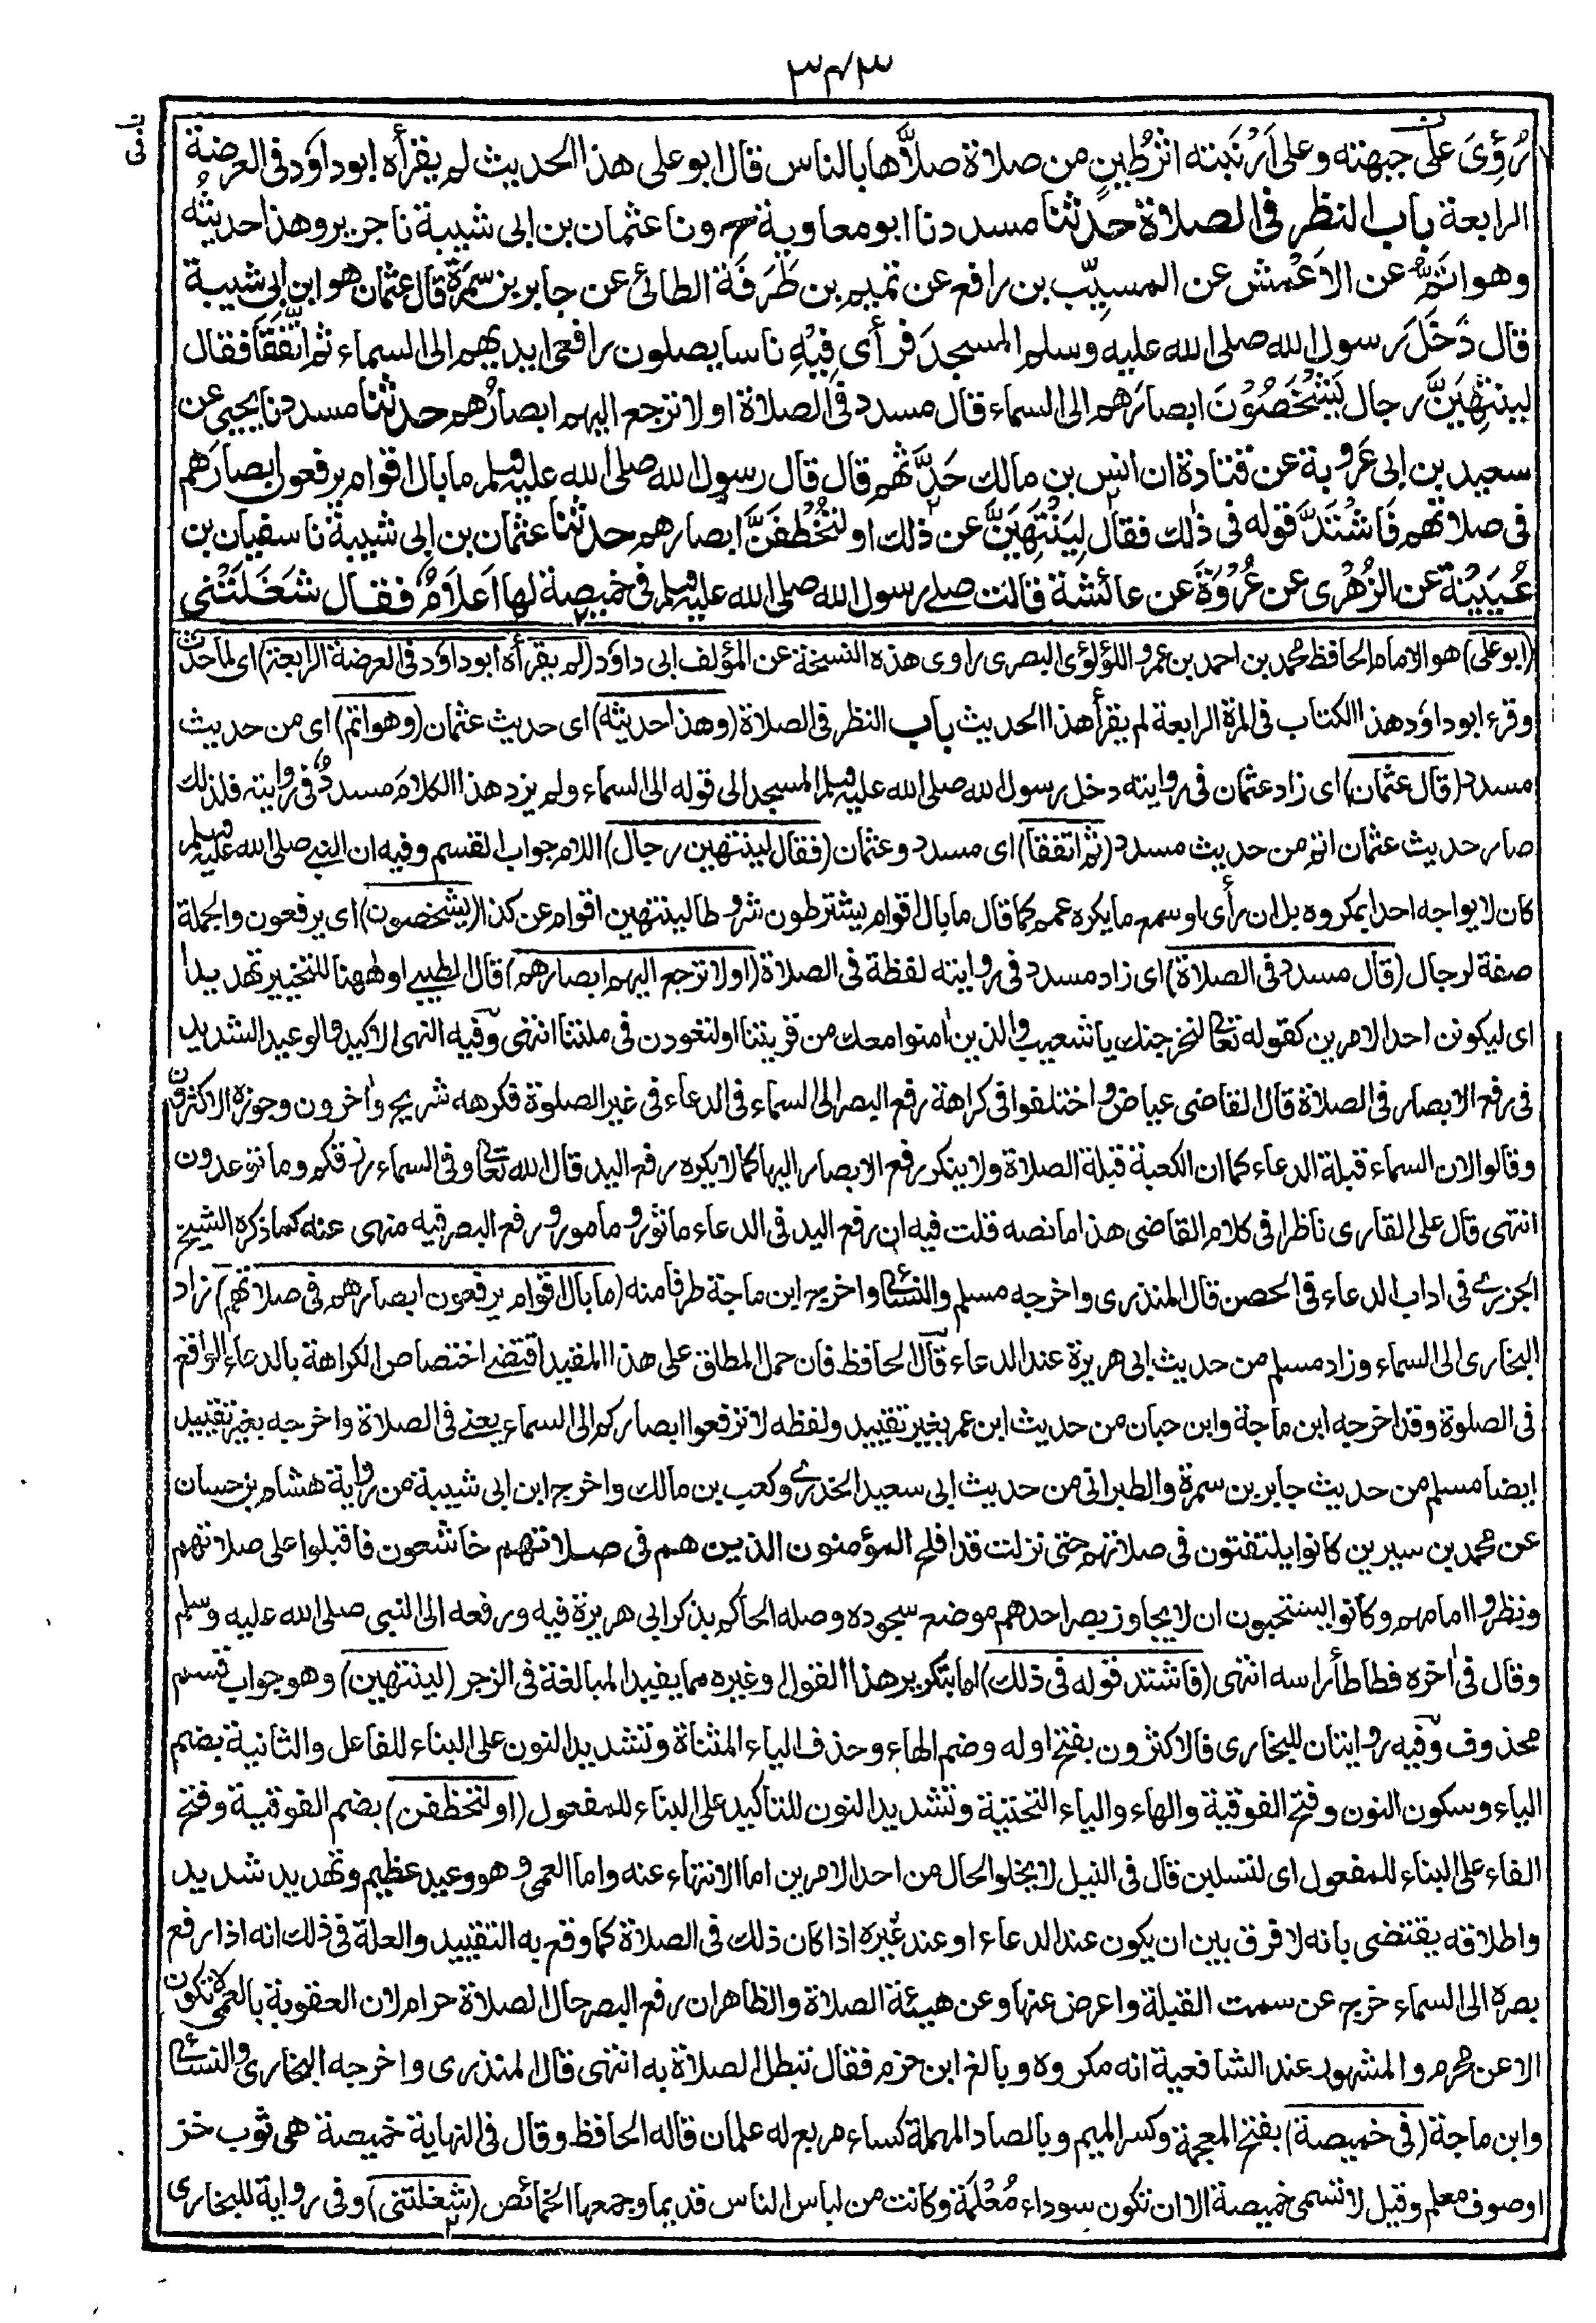 ٣٤٣
رُؤِىَ على جبهته وعلى أَرْنَبته اثرُطِينٍ من صلاة صلاَّها بالناس قال ابو على هذا الحديث لم يقرأه ابوداوَد فى العرضة
الرابعة باب النظر فى الصلاة حدثنا مسدد نا ابو معاوية ح ونا عثمان بن ابى شيبة نا جرير وهذا حديثُه
وهو اتمُّ عن الاَعْمش عن المسيّب بن رافع عن تميم بن طَرَفَة الطائى عن جابر بن سَمُرَة قال عثمان هو ابن ابى شيبة
قال دَخَلَ رسول الله صلى الله عليه وسلم المسجدَ فرأى فِيْهِ ناسا يصلون رافعى ايديهم الى السماء ثم اتَّفَقَا فقال
لينتهِيَنَّ رجال يَشْخَصُوْنَ ابصارَهم الى السماء قال مسدد فى الصلاة اولا ترجع اليهم ابصارُهم حدثنا مسدد نا يحيى عن
سعيد بن ابى عَرُوبة عن قتادة ان انس بن مالك حَدَّثهم قال قال رسول الله صلى الله عليه وسلم ما بال اقوام يرفعون ابصارَهم
فى صلاتهم فَاشْتَدَّ قوله فى ذلك فقال لِيَنْتَهِيَنَّ عن ذلك او لتُخْطَفَنَّ ابصارهم حدثنا عثمان بن ابى شيبة نا سفيان بن
عُيَيْنة عن الزُهْرى عن عُرْوَةَ عن عائشة قالت صلى رسول الله صلى الله عليه وسلم فى خميصة لها اَعلاَمٌ فقال شَغَلَتْنى
(ابوعلى) هو الامام الحافظ محمد بن احمد بن عمرو اللؤلؤى البصرى راوى هذه النسخة عن المؤلف ابى داوَد (لم يقرأه ابوداوَد فى العرضة الرابعة) اى لما حدث
وقرء ابوداوَد هذا الكتاب فى المرة الرابعة لم يقرأ هذا الحديث باب النظر فى الصلاة (وهذا حديثه) اى حديث عثمان (وهواتم) اى من حديث
مسدد (قال عثمان) اى زاد عثمان فى روايته دخل رسول الله صلى الله عليه وسلم المسجد الى قوله الى السماء ولم يزد هذا الكلامَ مسددٌ فى روايته فلذلك
صار حديث عثمان اتم من حديث مسدد (ثم اتفقا) اى مسدد وعثمان (فقال لينتهين رجال) اللام جواب القسم وفيه ان النبى صلى الله عليه وسلم
كان لا يواجه احدا بمكروه بل ان رأى اوسمع ما يكره عمم كما قال ما بال اقوام يشترطون شروطا لينتهين اقوام عن كذا (يشخصون) اى يرفعون والجملة
صفة لرجال (قال مسدد فى الصلاة) اى زاد مسدد فى روايته لفظة فى الصلاة (اولا ترجع اليهم ابصارهم) قال الطيبى او ههنا للتخيير تهديدا
اى ليكونن احد الامرين كقوله تعالى لنخرجنك يا شعيب والذين اٰمنوا معك من قريتنا اولتعودن فى ملتنا انتهى وفيه النهى الاكيد والوعيد الشديد
فى رفع الابصار فى الصلاة قال القاضى عياض واختلفوا فى كراهة رفع البصر الى السماء فى الدعاء فى غير الصلوة فكرهه شريح واٰخرون وجوزه الاكثرون
وقالوا لان السماء قبلة الدعاء كما ان الكعبة قبلة الصلاة ولا ينكر رفع الابصار اليها كما لا يكره رفع اليد قال الله تعالى وفى السماء رزقكم وما توعدون
انتهى قال على القارى ناظرا فى كلام القاضى هذا ما نصه قلت فيه ان رفع اليد فى الدعاء ماثور ومامور ورفع البصر فيه منهى عنه كما ذكره الشيخ
الجزرى فى اداب الدعاء فى الحصن قال المنذرى واخرجه مسلم والنسائى واخرج ابن ماجة طرفا منه (ما بال اقوام يرفعون ابصارهم فى صلاتهم) زاد
البخارى الى السماء وزاد مسلم من حديث ابى هريرة عند الدعاء قال الحافظ فان حمل المطلق على هذا المقيد اقتضى اختصاص الكراهة بالدعاء الواقع
فى الصلوة وقد اخرجه ابن ماجة وابن حبان من حديث ابن عمر بغير تقييد ولفظه لا ترفعوا ابصاركم الى السماء يعنى فى الصلاة واخرجه بغير تقييد
ايضا مسلم من حديث جابر بن سمرة والطبرانى من حديث ابى سعيد الخدرى وكعب بن مالك واخرج ابن ابى شيبة من رواية هشام بن حسان
عن محمد بن سيرين كانوا يلتفتون فى صلاتهم حتى نزلت قد افلح المؤمنون الذين هم فى صلاتهم خاشعون فاقبلوا على صلاتهم
ونظروا امامهم وكانوا يستحبون ان لا يجاوز بصر احدهم موضع سجوده وصله الحاكم بذكر ابى هريرة فيه ورفعه الى النبى صلى الله عليه وسلم
وقال فى اٰخره فطأطأ راسه انتهى (فاشتد قوله فى ذلك) اما بتكرير هذا القول وغيره مما يفيد المبالغة فى الزجر (لينتهين) وهو جواب قسم
محذوف وفيه روايتان للبخارى فالاكثرون بفتح اوله وضم الهاء وحذف الياء المثناة وتشديد النون على البناء للفاعل والثانية بضم
الياء وسكون النون وفتح الفوقية والهاء والياء التحتية وتشديد النون للتاكيد على البناء للمفعول (اولتخطفن) بضم الفوقية وفتح
الفاء على البناء للمفعول اى لتسلبن قال فى النيل لا يخلو الحال من احد الامرين اما الانتهاء عنه واما العمى وهو وعيد عظيم وتهديد شديد
واطلاقه يقتضى بانه لا فرق بين ان يكون عند الدعاء او عند غيره اذا كان ذلك فى الصلاة كما وقع به التقييد والعلة فى ذلك انه اذا رفع
بصره الى السماء خرج عن سمت القبلة واعرض عنها وعن هيئة الصلاة والظاهر ان رفع البصر حال الصلاة حرام لان العقوبة بالعمى لا تكون
الا عن محرم والمشهور عند الشافعية انه مكروه وبالغ ابن حزم فقال تبطل الصلاة به انتهى قال المنذرى واخرجه البخارى والنسائى
وابن ماجة (فى خميصة) بفتح المعجمة وكسر الميم وبالصاد المهملة كساء مربع له علمان قاله الحافظ وقال فى النهاية خميصة هى ثوب خز
اوصوف معلم وقيل لا تسمى خميصة الا ان تكون سوداء مُعْلَمَة وكانت من لباس الناس قديما وجمعها الخمائص (شغلتنى) وفى رواية للبخارى